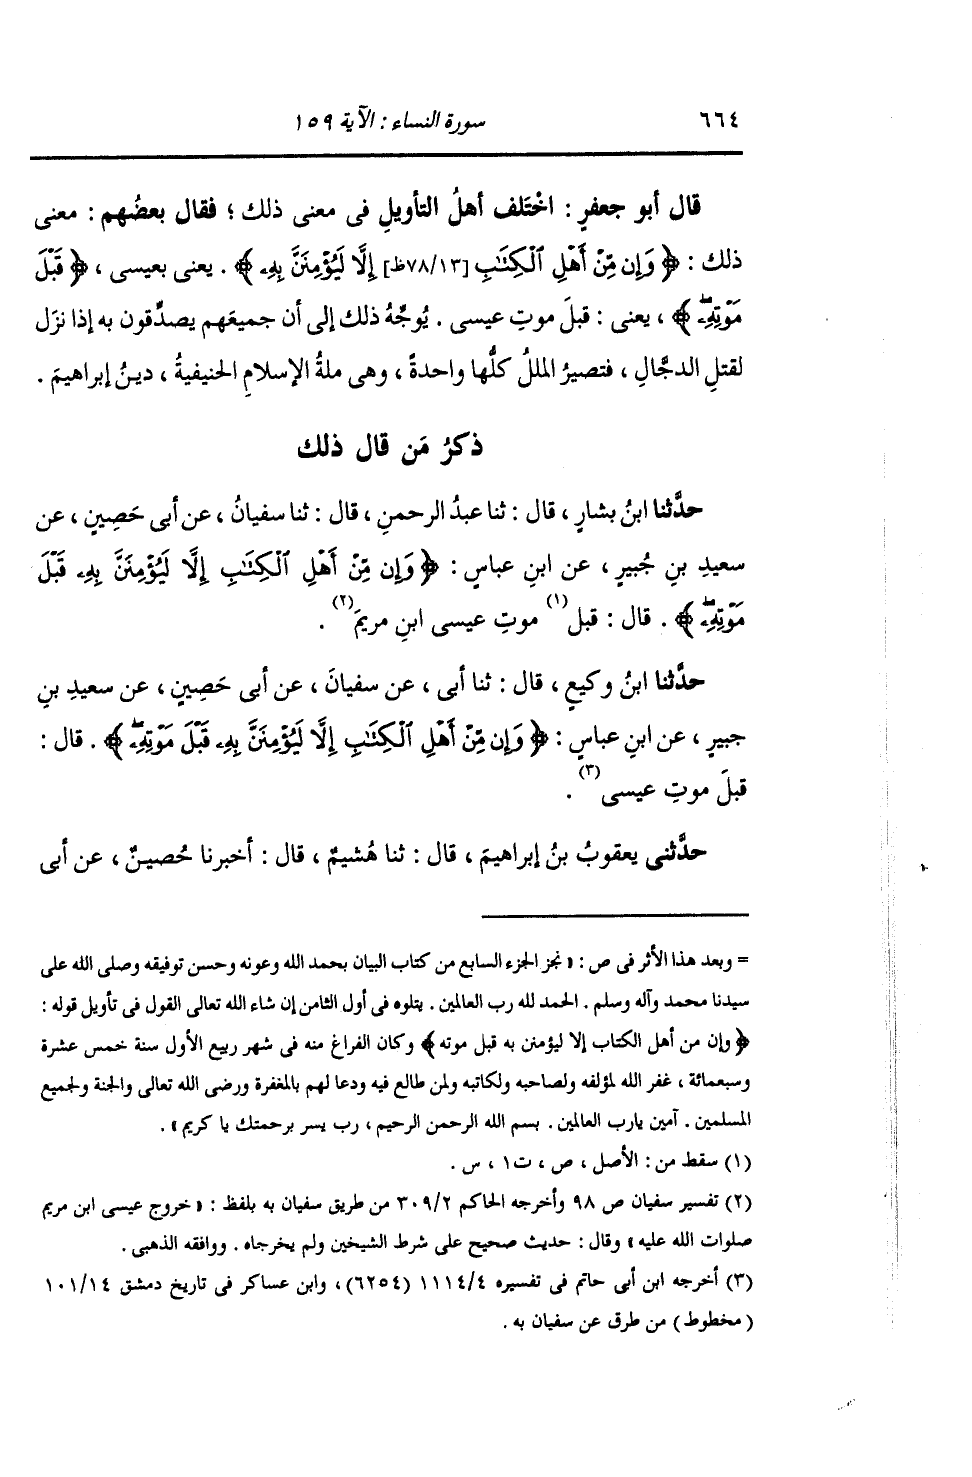 ٦٦٤ سورة النساء : الآية ١٥٩
قال أبو جعفرٍ : اختَلف أهلُ التأويلِ فى معنى ذلك ؛ فقال بعضُهم : معنى
ذلك : ﴿ وَإِن مِّنْ أَهْلِ ٱلْكِتَٰبِ [٧٨/١٣ظ] إِلَّا لَيُؤْمِنَنَّ بِهِۦ ﴾ . يعنى بعيسى ، ﴿ قَبْلَ
مَوْتِهِۦۖ ﴾ ، يعنى : قبلَ موتِ عيسى . يُوجِّهُ ذلك إلى أن جميعَهم يصدِّقون به إذا نزَل
لقتلِ الدجَّالِ ، فتصيرُ المللُ كلُّها واحدةً ، وهى ملةُ الإسلامِ الحنيفيةُ ، دينُ إبراهيمَ .
ذكرُ مَن قال ذلك
حدَّثنا ابنُ بشارٍ ، قال : ثنا عبدُ الرحمنِ ، قال : ثنا سفيانُ ، عن أبى حَصِينٍ ، عن
سعيدِ بنِ جُبيرٍ ، عن ابنِ عباسٍ : ﴿ وَإِن مِّنْ أَهْلِ ٱلْكِتَٰبِ إِلَّا لَيُؤْمِنَنَّ بِهِۦ قَبْلَ
مَوْتِهِۦۖ ﴾ . قال : قبل(١) موتِ عيسى ابنِ مريمَ(٢) .
حدَّثنا ابنُ وكيعٍ ، قال : ثنا أبى ، عن سفيانَ ، عن أبى حَصِينٍ ، عن سعيدِ بنِ
جبيرٍ ، عن ابنِ عباسٍ : ﴿ وَإِن مِّنْ أَهْلِ ٱلْكِتَٰبِ إِلَّا لَيُؤْمِنَنَّ بِهِۦ قَبْلَ مَوْتِهِۦۖ ﴾ . قال :
قبلَ موتِ عيسى(٣) .
حدَّثنى يعقوبُ بنُ إبراهيمَ ، قال : ثنا هُشيمٌ ، قال : أخبرنا حُصينٌ ، عن أبى
= وبعد هذا الأثر فى ص : « نجز الجزء السابع من كتاب البيان بحمد الله وعونه وحسن توفيقه وصلى الله على
سيدنا محمد وآله وسلم . الحمد لله رب العالمين . يتلوه فى أول الثامن إن شاء الله تعالى القول فى تأويل قوله :
﴿ وإن من أهل الكتاب إلا ليؤمنن به قبل موته ﴾ وكان الفراغ منه فى شهر ربيع الأول سنة خمس عشرة
وسبعمائة ، غفر الله لمؤلفه ولصاحبه ولكاتبه ولمن طالع فيه ودعا لهم بالمغفرة ورضى الله تعالى والجنة ولجميع
المسلمين . آمين يارب العالمين . بسم الله الرحمن الرحيم ، رب يسر برحمتك يا كريم » .
(١) سقط من : الأصل ، ص ، ت١ ، س .
(٢) تفسير سفيان ص ٩٨ وأخرجه الحاكم ٣٠٩/٢ من طريق سفيان به بلفظ : « خروج عيسى ابن مريم
صلوات الله عليه » وقال : حديث صحيح على شرط الشيخين ولم يخرجاه . ووافقه الذهبى .
(٣) أخرجه ابن أبى حاتم فى تفسيره ١١١٤/٤ (٦٢٥٤) ، وابن عساكر فى تاريخ دمشق ١٠١/١٤
( مخطوط ) من طرق عن سفيان به .